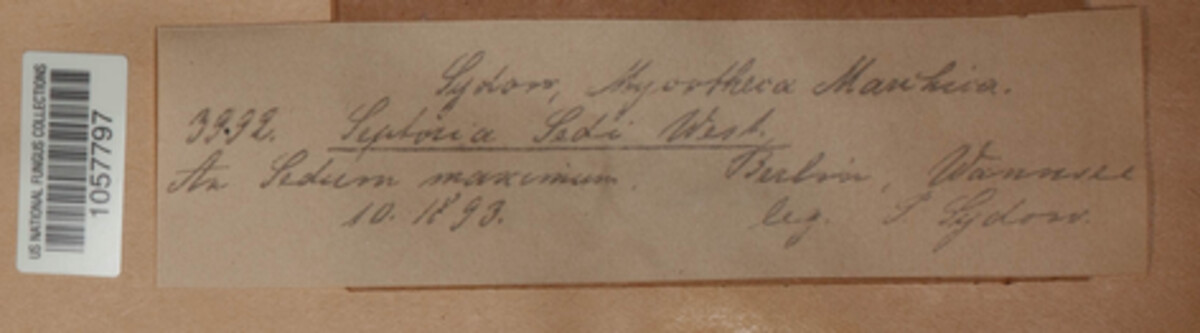 US NATIONAL FUNGUS COLLECTIONS
1057797
Sydow, Mycotheca Marchica.
3992. Septoria Sedi West.
An Sedum maximum. Berlin, Wannsee
10. 1893. leg. P Sydow.